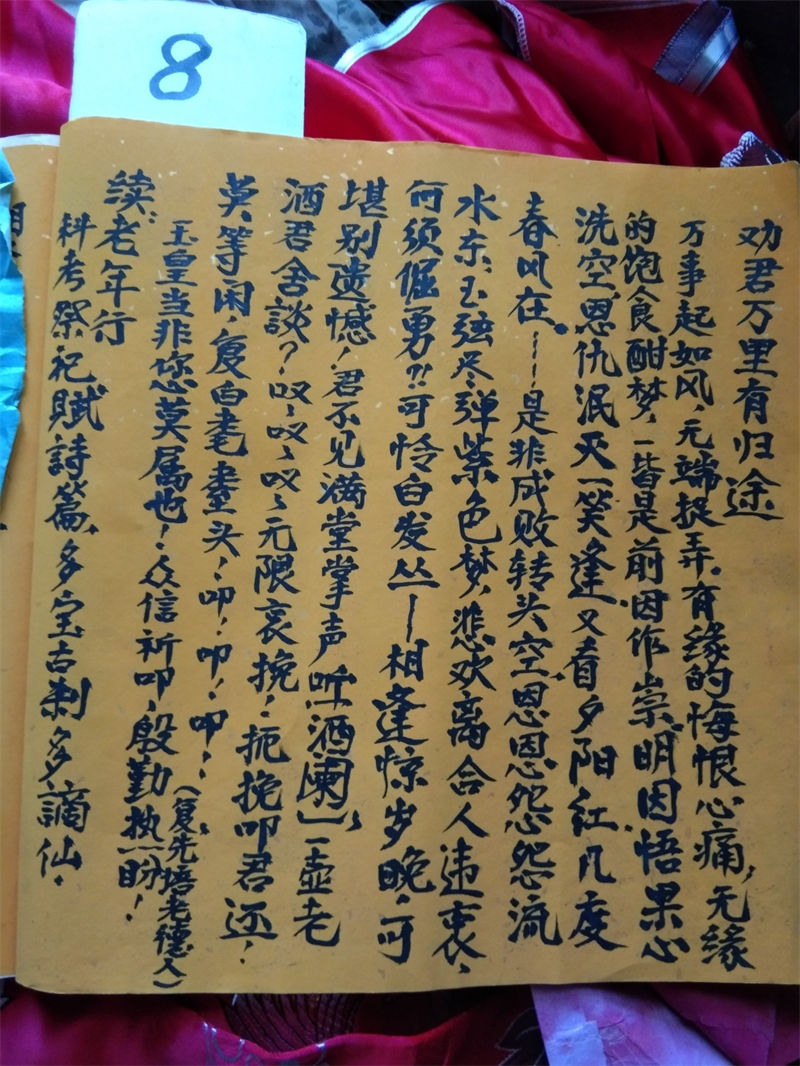 8
劝君万里有归途
万事起如风，无端捉弄。有缘的悔恨心痛，无缘
的饱食酣梦，一皆是前因作崇。明因悟果心
洗空，恩仇泯灭一笑逢。又看夕阳红，几度
春风在。——是非成败转头空，恩恩怨怨流
水东，玉弦尽弹紫色梦，悲欢离合人违衷，
何须倔勇?!可怜白发丛——相逢惊岁晚，可
堪别遗憾！君不见满堂掌声吁酒阑，一壶老
酒君舍谈？叹、叹、叹、无限哀挽！扼挽叩君还！
莫等闲，复白耄耋头！叩！叩！叩！
（复先培老德人）
玉皇当非您莫属也！众信祈叩，殷勤执盼！
续：老年行
料考祭祀赋詩篇，多宝古刹多謫仙。